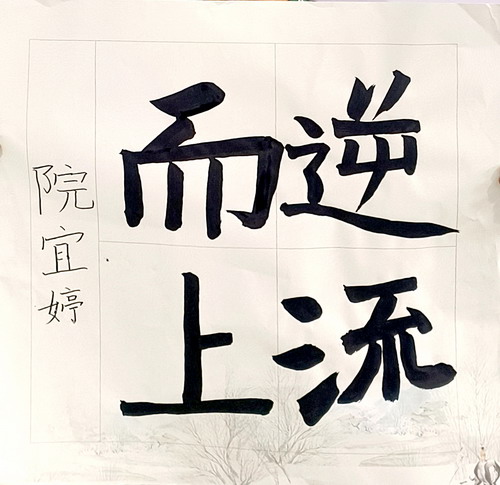 逆流
而上
院宜婷